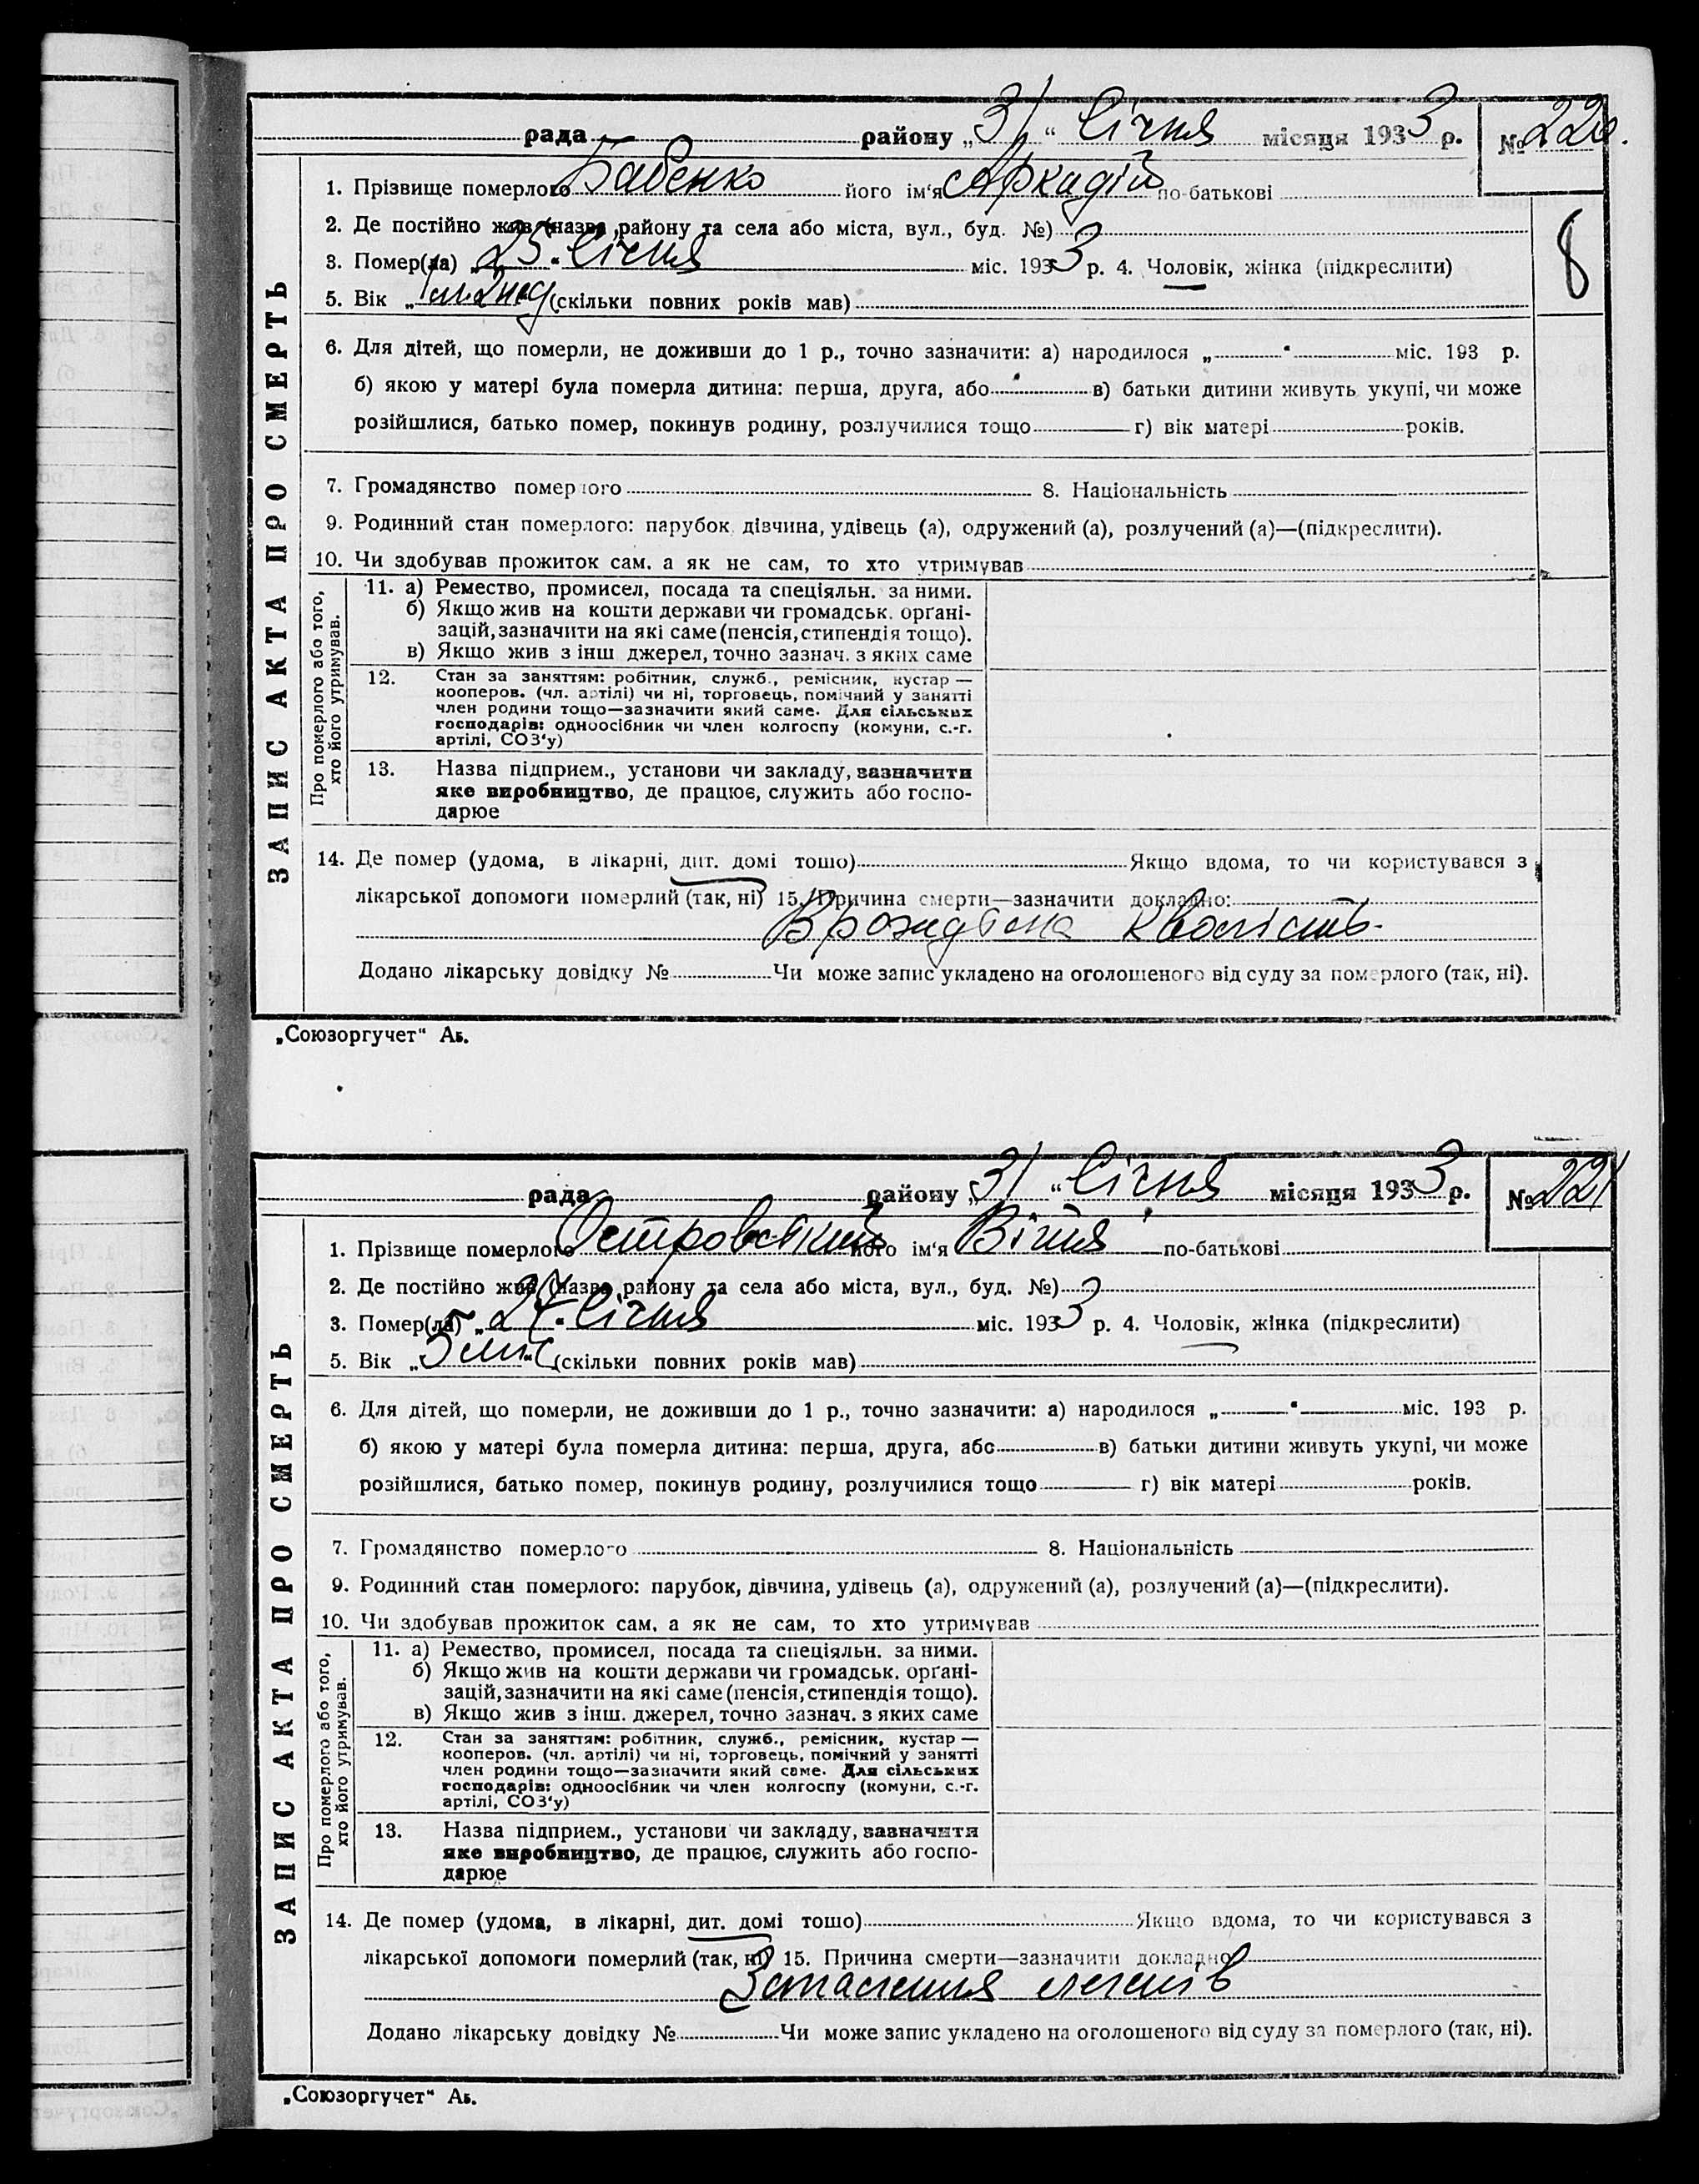 рада района „31“ Січня місяця 1933 р. №220.
1. Прізвище померлого Бабенко його ім'я Аркадій по-батькові
2. Де постійно жив (назва району та села або міста, вул., буд. №)
3. Помер(ла) „25“ Січня міс. 1933 р. 4. Чоловік, жінка (підкреслити)
8
5. Вік „1 м. 2 нед“ (скільки повних років мав)
6. Для дітей, що померли, не доживши до 1 р., точно зазначити: а) народилося „ “ міс. 193 р.
б) якою у матері була померла дитина: перша, друга, або в) батьки дитини живуть укупі, чи може
розійшлися, батько помер, покинув родину, розлучилися тощо г) вік матері років.
7. Громадянство померлого 8. Національність
9. Родинний стан померлого: парубок, дівчина, удівець (а), одружений (а), розлучений (а)—(підкреслити).
10. Чи здобував прожиток сам, а як не сам, то хто утримував
ЗАПИС АКТА ПРО СМЕРТЬ
Про померлого або того, хто його утримував.
11. а) Ремество, промисел, посада та спеціяльн. за ними.
б) Якщо жив на кошти держави чи громадськ. орґані-
зацій, зазначити на які саме (пенсія, стипендія тощо).
в) Якщо жив з інш джерел, точно зазнач. з яких саме
12. Стан за заняттям: робітник, служб., ремісник, кустар —
кооперов. (чл. артілі) чи ні, торговець, помічний у занятті
член родини тощо—зазначити який саме. Для сільських
господарів: одноосібник чи член колгоспу (комуни, с.-г.
артілі, СОЗ'у)
13. Назва підприєм., установи чи закладу, зазначити
яке виробництво, де працює, служить або госпо-
дарює
14. Де помер (удома, в лікарні, дит. домі тощо) Якщо вдома, то чи користувався з
лікарської допомоги померлий (так, ні) 15. Причина смерти—зазначити докладно:
Врождена кволість.
Додано лікарську довідку № Чи може запис укладено на оголошеного від суду за померлого (так, ні).
„Союзоргучет“ Аб.
рада району „31“ Січня місяця 1933 р. №221
1. Прізвище померлого Островський його ім'я Вітя по-батькові
2. Де постійно жив (назва району та села або міста, вул., буд. №)
3. Помер(ла) „27“ Січня міс. 1933 р. 4. Чоловік, жінка (підкреслити)
5. Вік „5 міс“ (скільки повних років мав)
6. Для дітей, що померли, не доживши до 1 р., точно зазначити: а) народилося „ “ міс. 193 р.
б) якою у матері була померла дитина: перша, друга, або в) батьки дитини живуть укупі, чи може
розійшлися, батько помер, покинув родину, розлучилися тощо г) вік матері років.
7. Громадянство померлого 8. Національність
9. Родинний стан померлого: парубок, дівчина, удівець (а), одружений (а), розлучений (а)—(підкреслити).
10. Чи здобував прожиток сам, а як не сам, то хто утримував
ЗАПИС АКТА ПРО СМЕРТЬ
Про померлого або того, хто його утримував.
11. а) Ремество, промисел, посада та спеціяльн. за ними.
б) Якщо жив на кошти держави чи громадськ. орґані-
зацій, зазначити на які саме (пенсія, стипендія тощо).
в) Якщо жив з інш. джерел, точно зазнач. з яких саме
12. Стан за заняттям: робітник, служб., ремісник, кустар —
кооперов. (чл. артілі) чи ні, торговець, помічний у занятті
член родини тощо—зазначити який саме. Для сільських
господарів: одноосібник чи член колгоспу (комуни, с.-г.
артілі, СОЗ'у)
13. Назва підприєм., установи чи закладу, зазначити
яке виробництво, де працює, служить або госпо-
дарює
14. Де помер (удома, в лікарні, дит. домі тощо) Якщо вдома, то чи користувався з
лікарської допомоги померлий (так, ні) 15. Причина смерти—зазначити докладно
Запалення легенів
Додано лікарську довідку № Чи може запис укладено на оголошеного від суду за померлого (так, ні).
„Союзоргучет“ Аб.